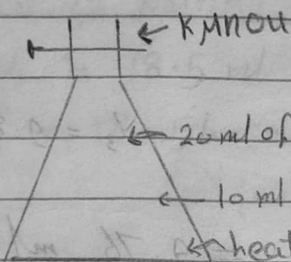 KMnO4
20 ml of
10 ml
heat